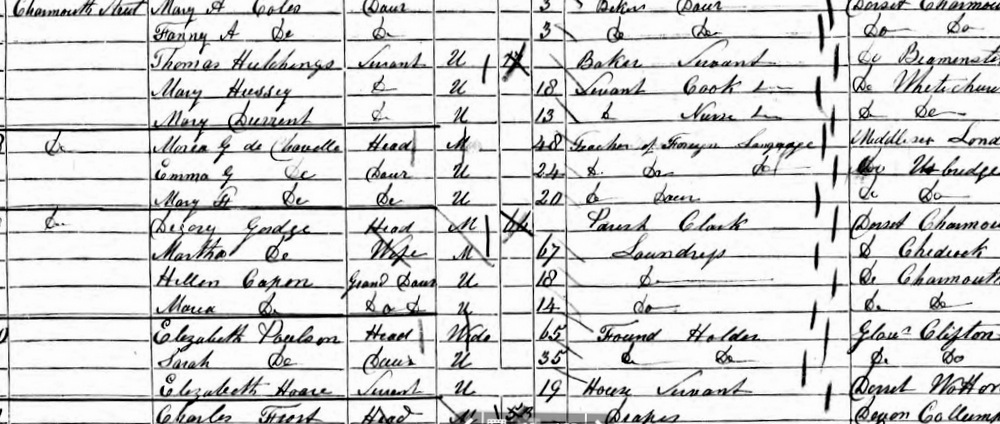 Charmouth Street Mary A Coles Daur 3 Bakers Daur Dorset Charmou
Fanny A Do Do 3 Do Do Do Do
Thomas Hutchings Servant U Baker Servant Do Beaminst
Mary Hussey Do U 18 Servant Cook Do Whitchur
Mary Durrent Do U 13 Do Nurse Do Do
Do Maria G de Head M 48 Teacher of Foreign Language Middlesex Lond
Emma G Do Daur U 24 Do Do Do Do Uxbridge
Mary F Do Do U 20 Do Daur Do Do
Do Degory Gordge Head M Parish Clark Dorset Charmou
Martha Do Wife M 67 Laundress D Chideock
Hellen Capon Grand Daur U 18 Do Do Charmouth
Maria Do Do D U 14 Do Do Do
Elezabeth Head Wido 65 Found Holder Glous Clifton
Sarah Do Daur U 35 Do Do Do Do
Elezabeth Hoare Servant U 19 House Servant Dorset Wotton
Charles Frost Head M Draper Devon Collump